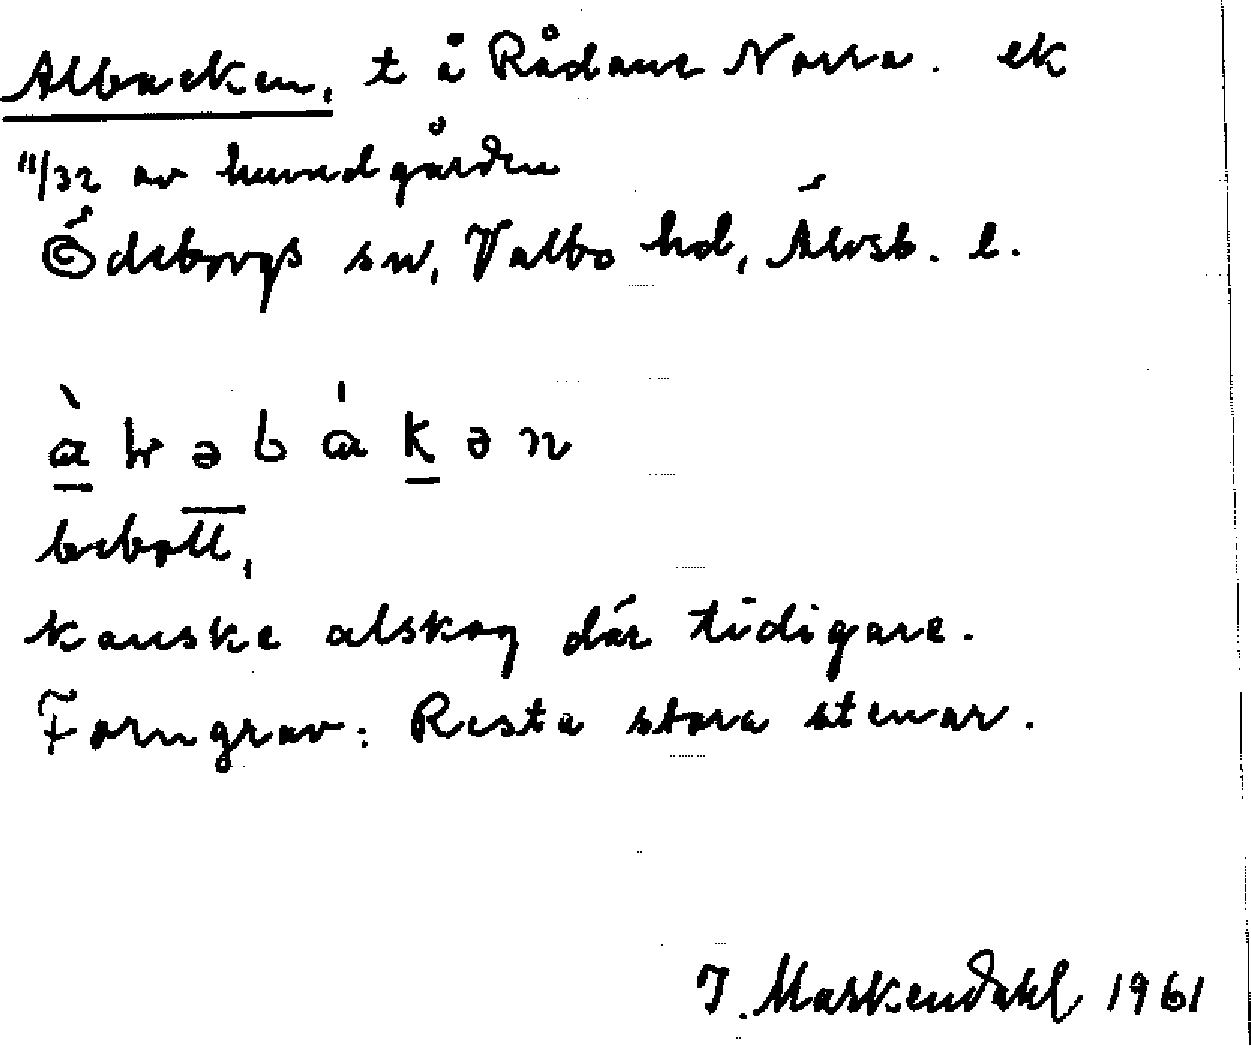 Albacken, t å Rådane Norra. ek
11/32 av huvudgården
Ödeborgs sn, Valbo hd, Älvsb. l.
bebott,
kanske alskog där tidigare.
Forngrav: Resta stora stenar.
J. Markendahl 1961